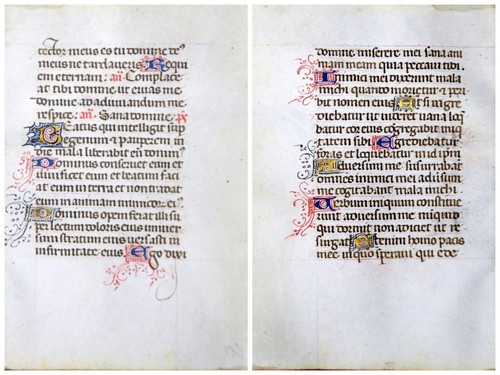 tector meus es tu domine de
meus ne tardaveris. Requi
em eternam. an. Complace
at tibi domine ut eruas me
domine ad adiuvandum me
respice. an. Sana domine. ps
Beatus qui intelligit sup
egenum et pauperem in
die mala liberabit eum domin
Dominus conservet eum et
vivificet eum et beatum faciat
eum in terra et non tradat
eum in animam inimicor ei
Dominus opem ferat illi su
per lectum doloris eius univer
sum stratum eius versasti in
infirmitate eius. Ego dixi
domine miserere mei sana ani
mam meam quia peccavi tibi.
Inimici mei dixerunt mala
michi quando morietur et peri
bit nomen eius. Et si ingre
diebatur ut videret vana lo
batur cor eius congregabit iniqui
tatem sibi. Egrediebatur
foras et loquebatur in id ipm
Adversum me susurrabant
omnes inimici mei adversum
me cogitabant mala michi
Verbum iniquum constitue
runt adversum me nunquid
qui dormit non adiciet ut re
surgat. Etenim homo pacis
mee in quo speravi qui ede